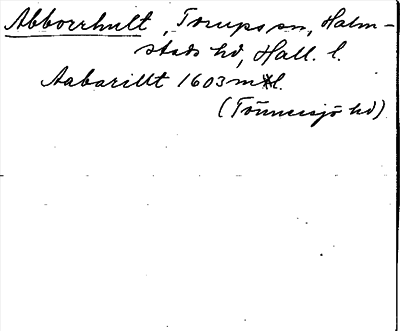 Abborrhult, Torups sn, Halm-
stads hd, Hall. l.
Aabarillt 1603 mtl.
(Tönnersjö hd)